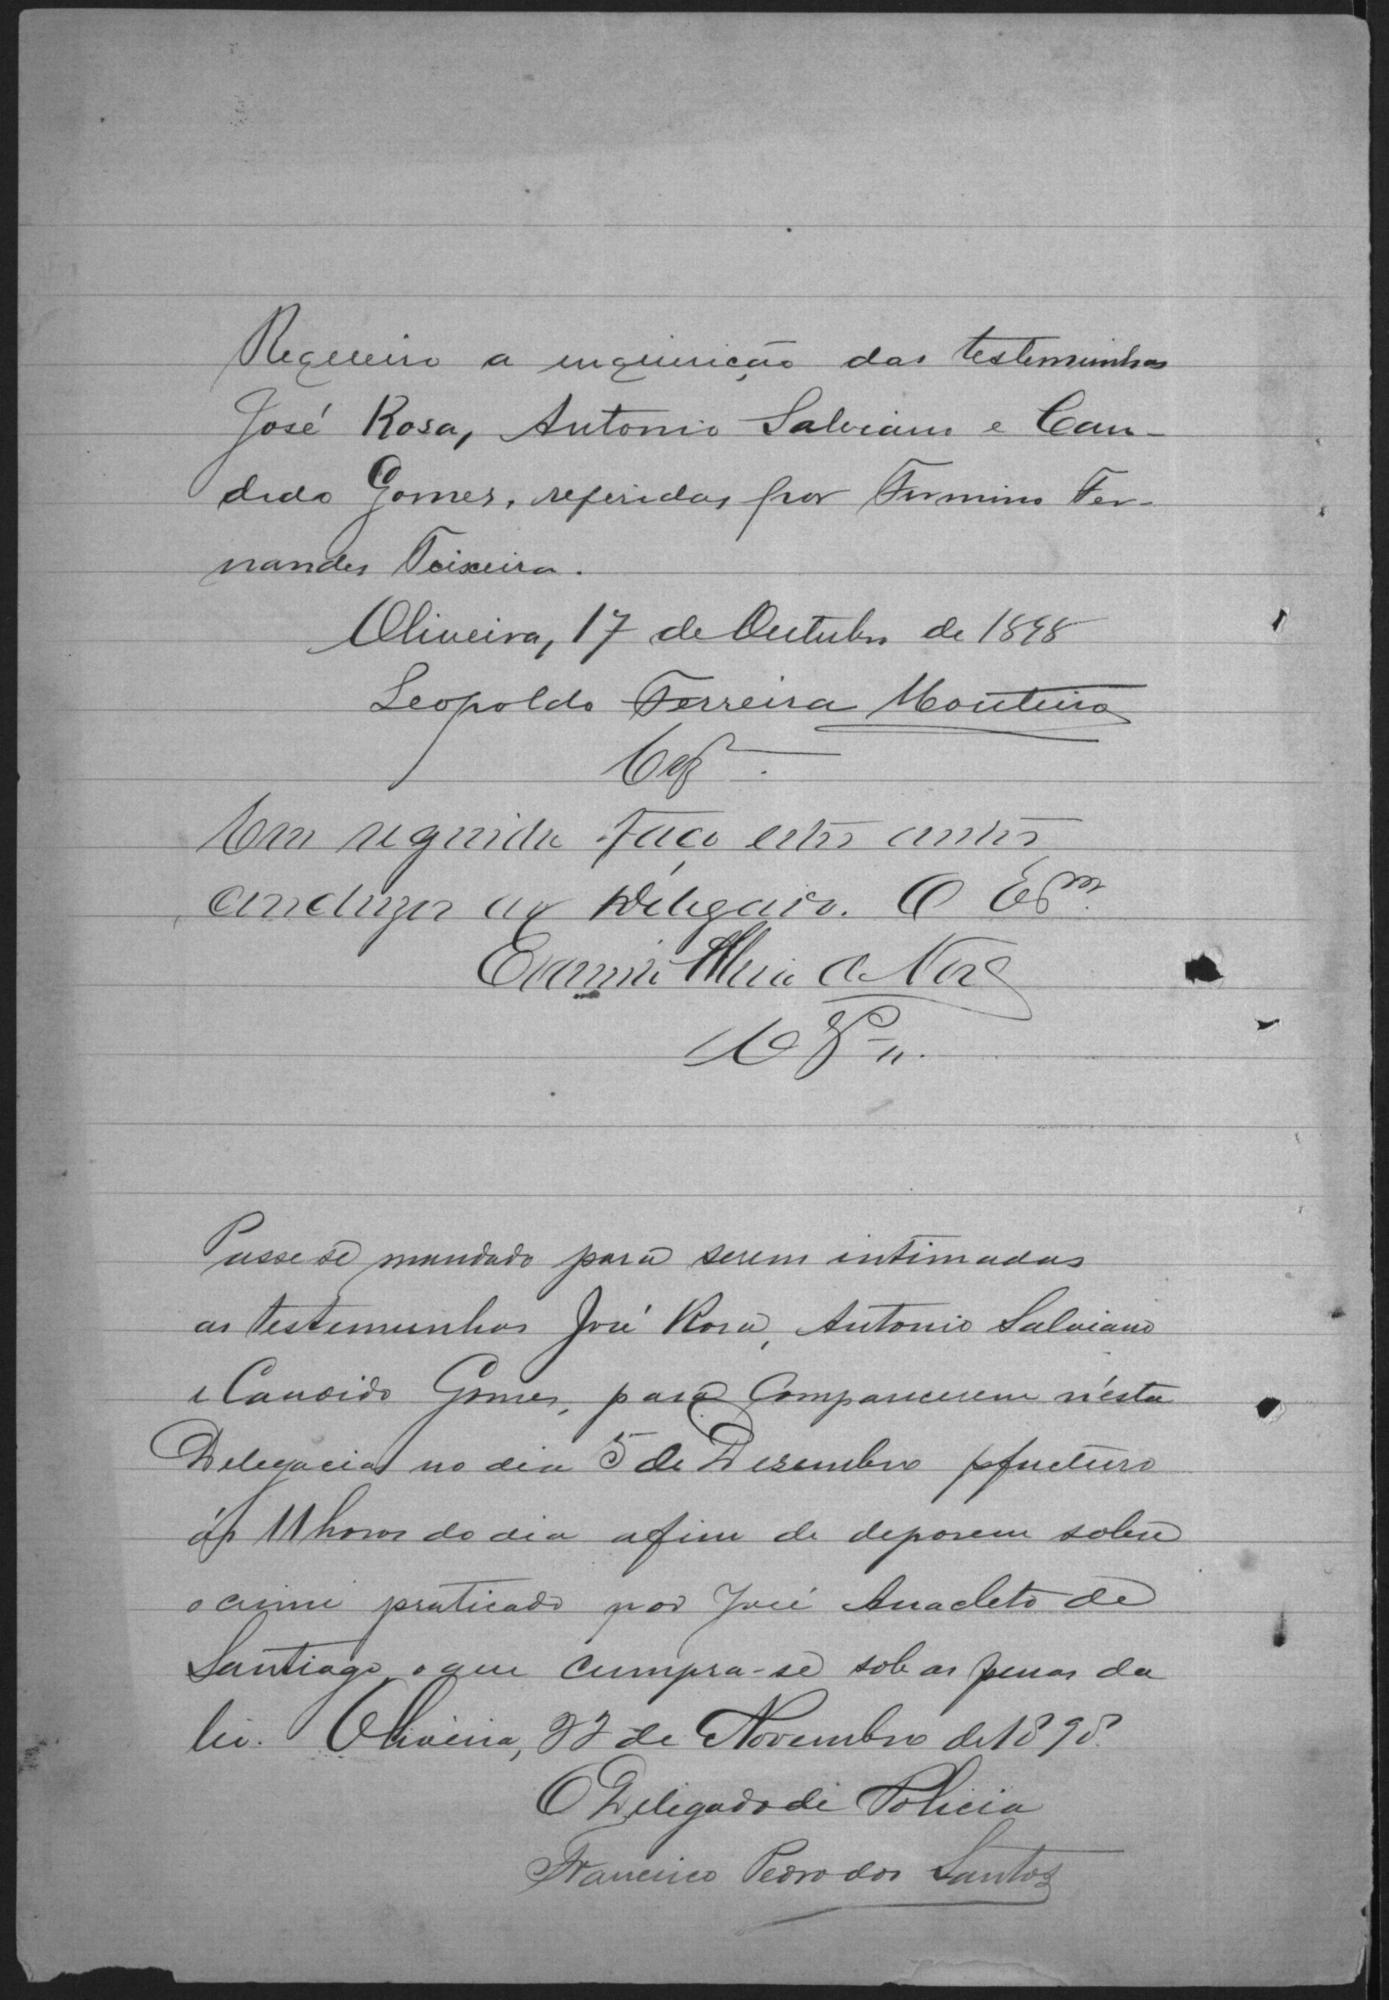 Requeiro a inquirição das testemunhas
José Rosa, Antonio Salviano e Can-
dido Gomes, referidas por Firmino Fer-
nandes Teixeira.
Oliveira, 17 de Outubro de 1898
Leopoldo Ferreira Monteiro
Em seguida faço estes autos
concluzos ao Delegado. O Esm.
Passe se mandado para serem intimadas
as testemunhas José Rosa, Antonio Salviano
e Candido Gomes, para comparecerem n'esta
Delegacia no dia 5 de Dezembro pfucturo
ás 11 horas do dia afim de deporem sobre
o crime praticado por José Anacleto de
Santiago, o que cumpra-se sob as penas da
lei. Oliveira, 22 de Novembro de 1898.
O Delegado de Policia
Francisco Pedro dos Santos